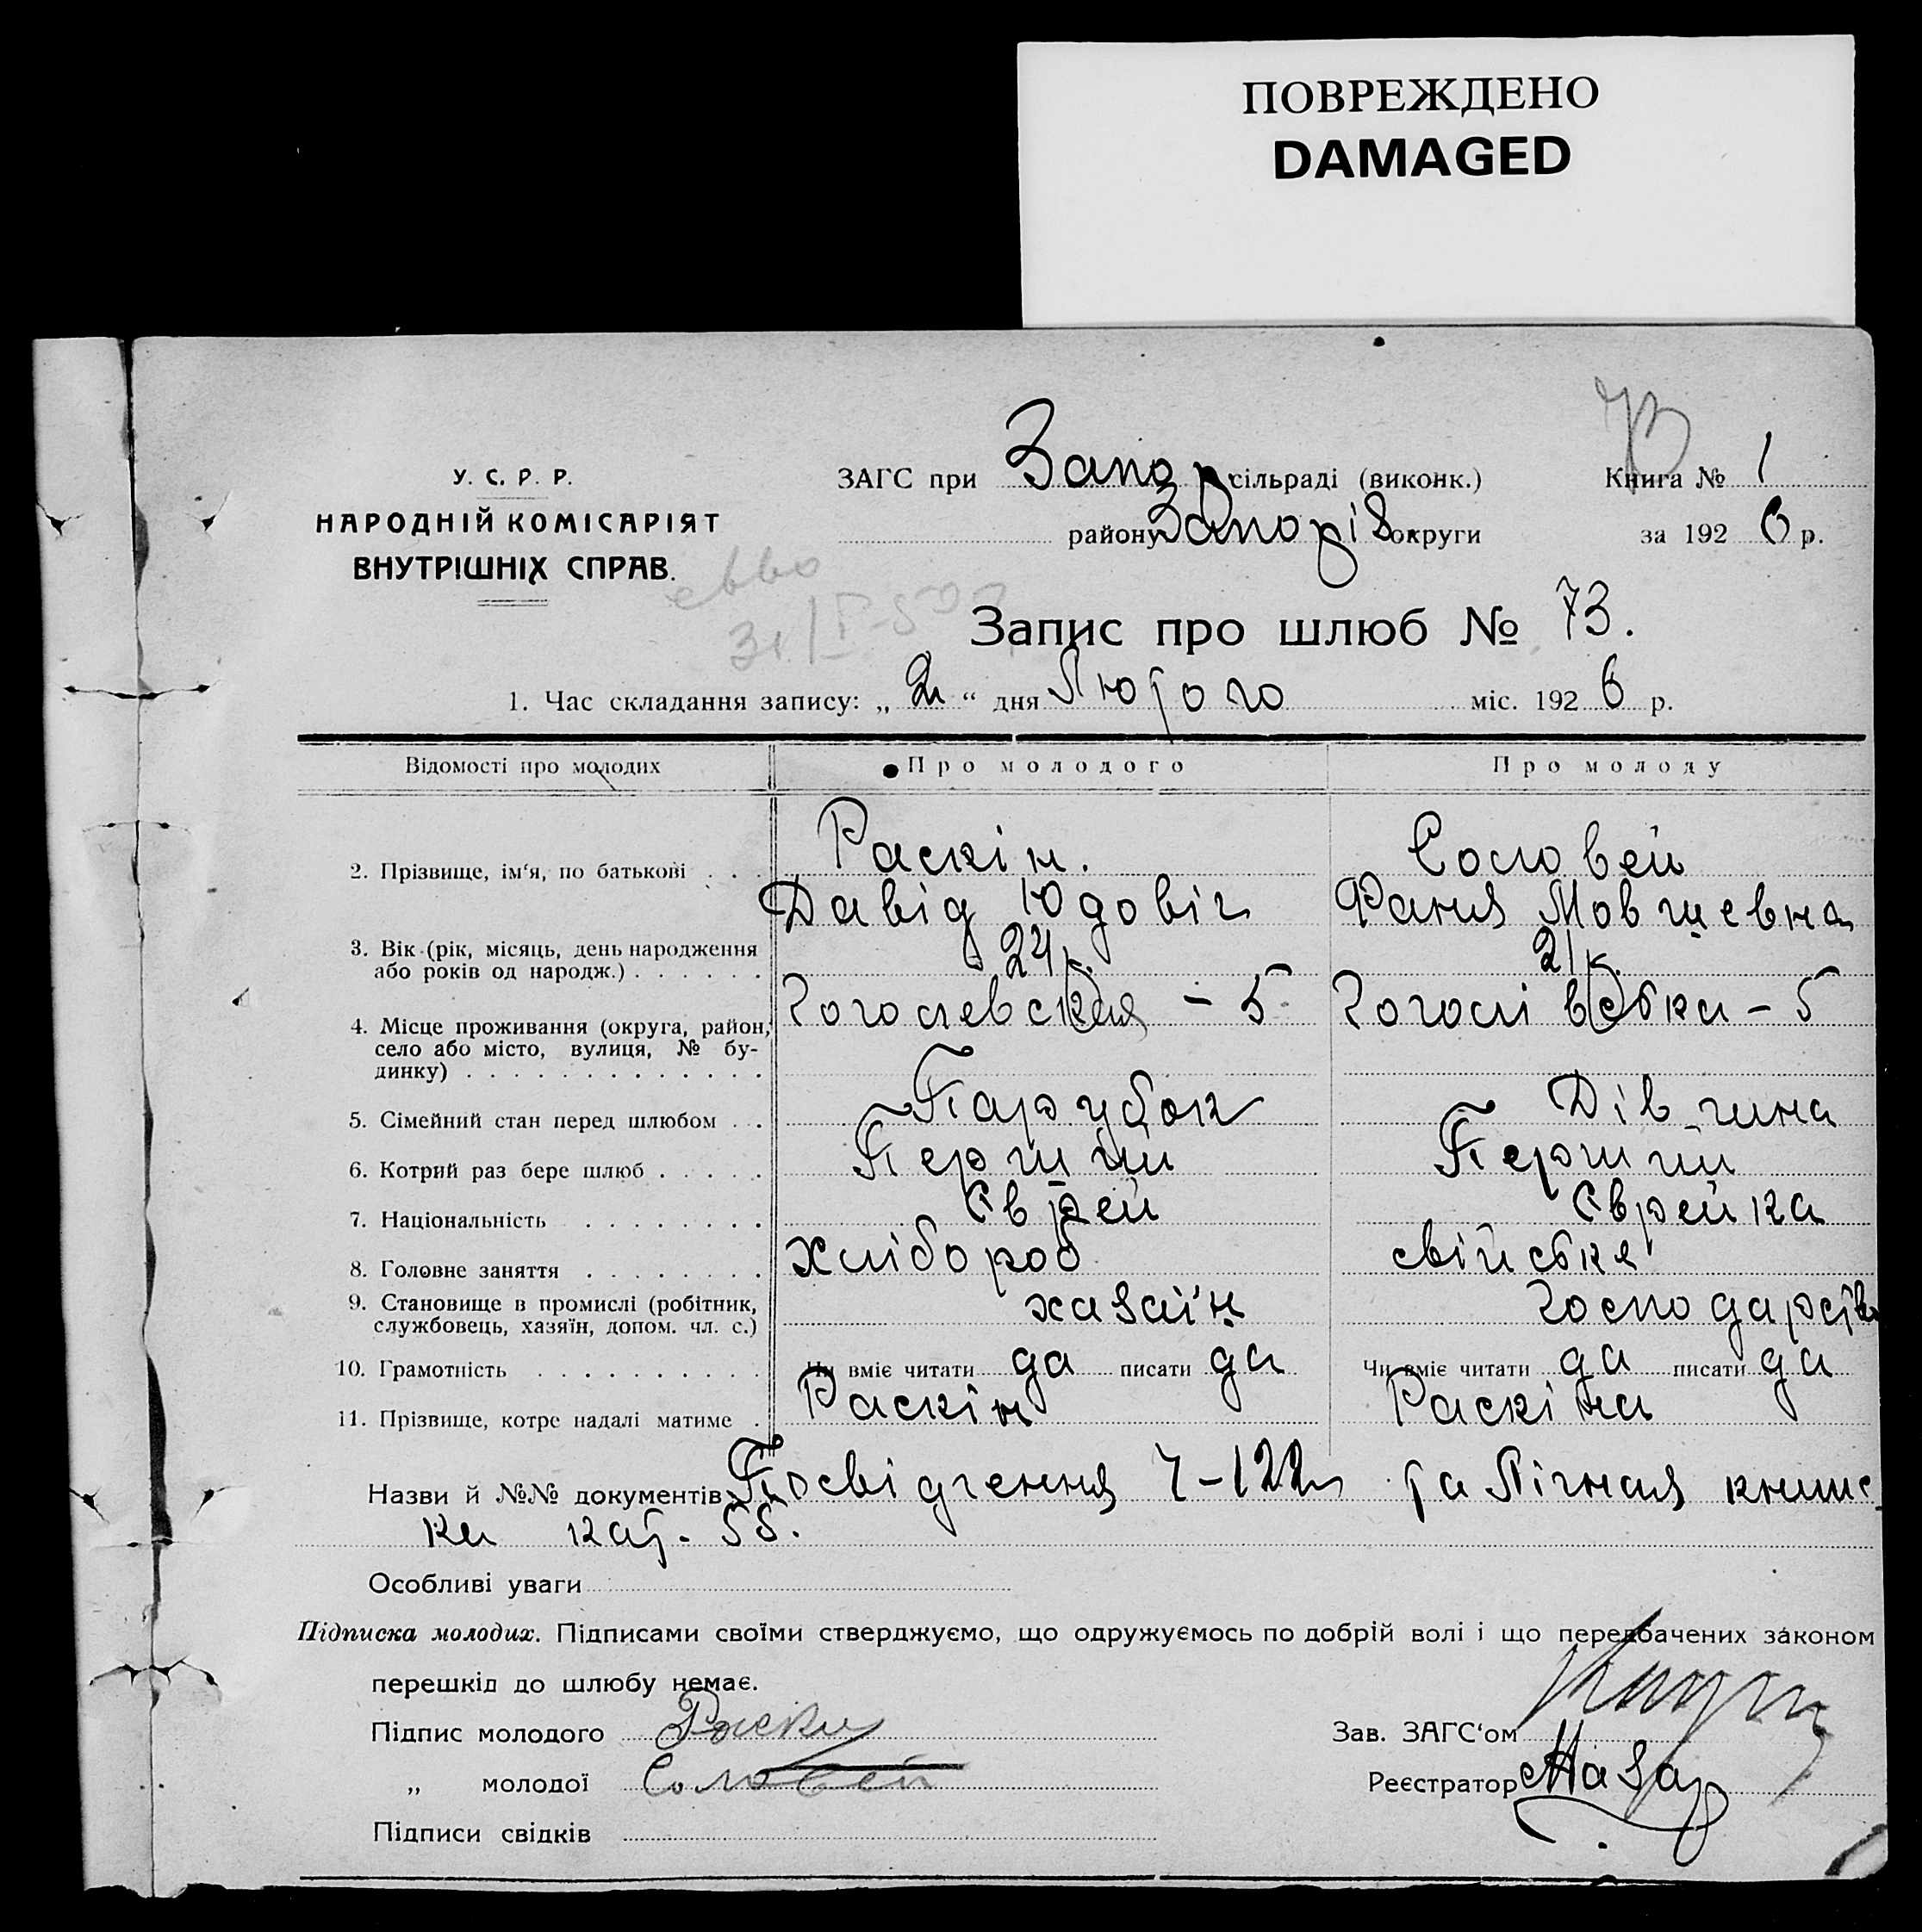 ПОВРЕЖДЕНО
DAMAGED
73
У. С. Р. Р.
НАРОДНІЙ КОМІСАРІЯТ
ВНУТРІШНІХ СПРАВ.
ЗАГС при Запор сільраді (виконк.)
району Запоріз округи
Книга № 1
за 1926 р.
31/I-50
Запис про шлюб № 73.
1. Час складання запису: „ 2 “ дня Лютого міс. 1926 р.
Відомості про молодих Про молодого Про молоду
2. Прізвище, ім‘я, по батькові . . . Раскін. Соловей
Давід Юдовіч Фаня Мовшевна
3. Вік (рік, місяць, день народження
або років од народж.) . . . . . . 24 р. 21 р.
4. Місце проживання (округа, район,
село або місто, вулиця, № бу-
динку) . . . . . . . . . . . . . Гоголевская - 5 Гоголівська - 5
5. Сімейний стан перед шлюбом . . Парубок Дівчина
6. Котрий раз бере шлюб . . . . . Перший Перший
7. Національність . . . . . . . . Єврей Єврейка
8. Головне заняття . . . . . . . . Хлібороб свійське
9. Становище в промислі (робітник,
службовець, хазяїн, допом. чл. с.) хазаїн господарств
10. Грамотність . . . . . . . . . . Чи вміє читати да писати да Чи вміє читати да писати да
11. Прізвище, котре надалі матиме . Раскін Раскіна
Назви й №№ документів Посвідчення 7-122 та Лічная книж
ка кат. 55.
Особливі уваги
Підписка молодих. Підписами своїми стверджуємо, що одружуємось по добрій волі і що передбачених законом
перешкід до шлюбу немає.
Підпис молодого Раскин
Зав. ЗАГС‘ом
„ молодої Соловей
Реєстратор Назар
Підписи свідків